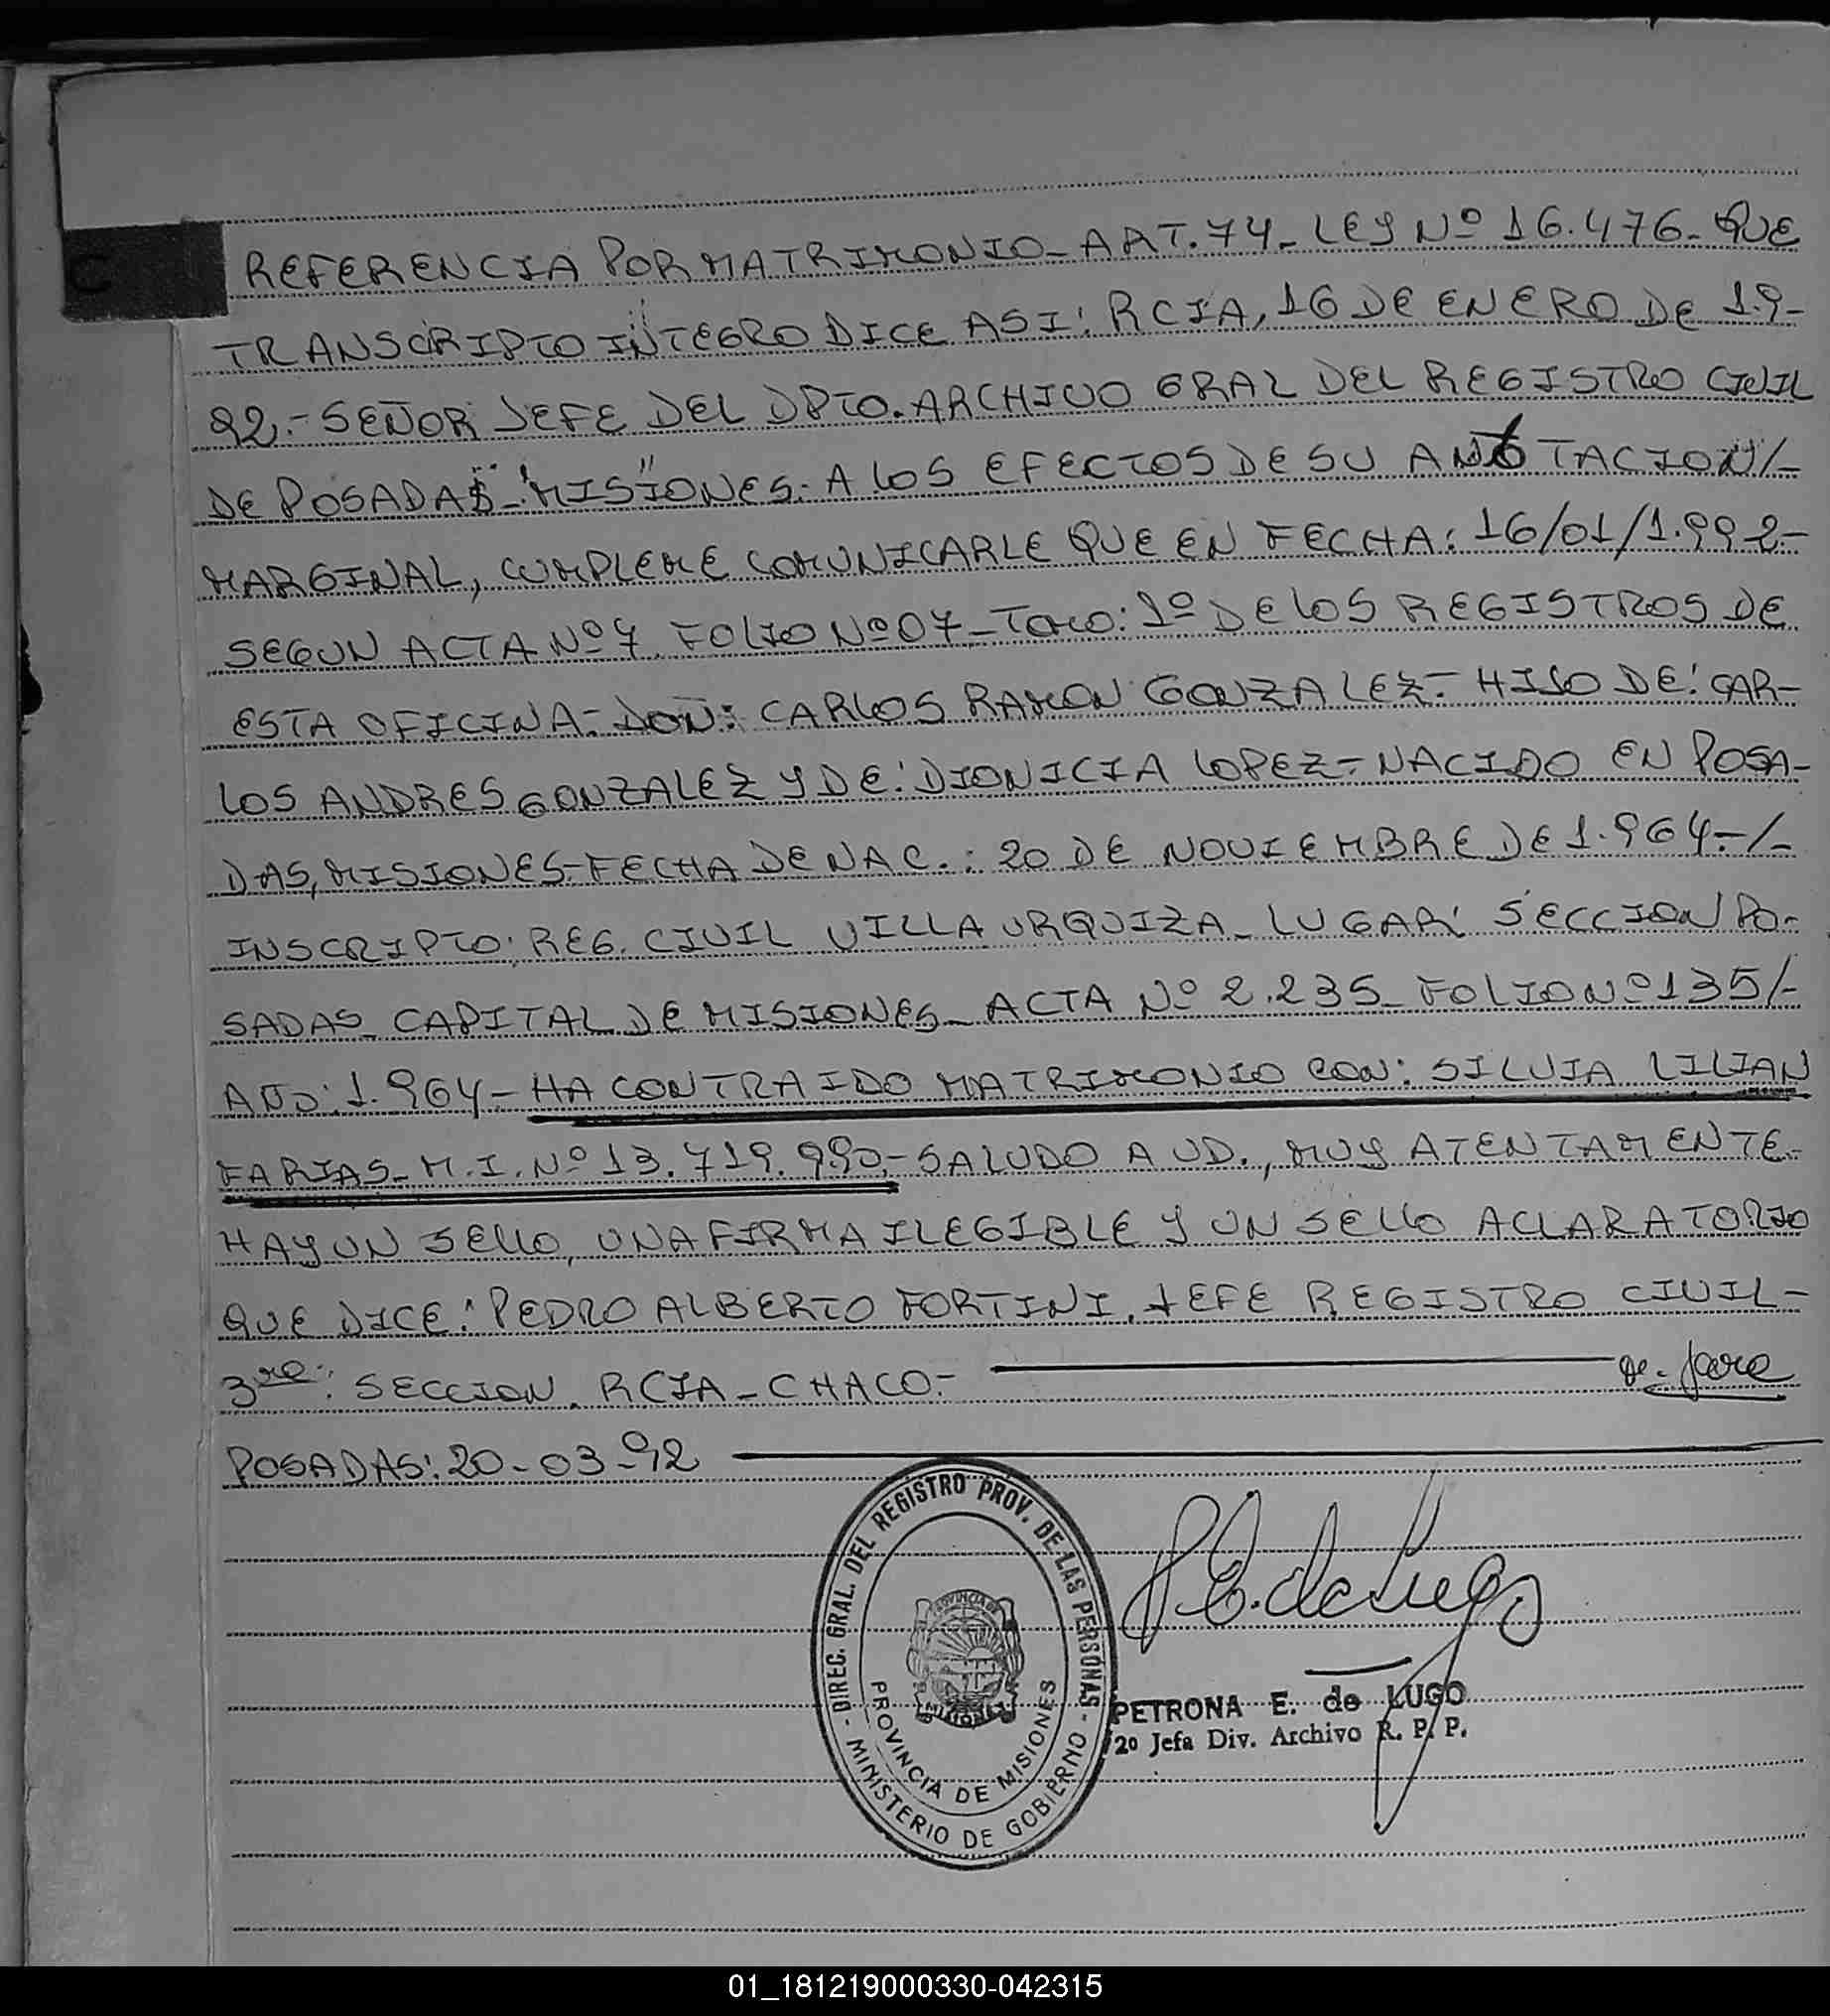 C
REFERENCIA POR MATRIMONIO - ART. 74 - LEY Nº 16.476 - QUE
TRANSCRIPTO INTEGRO DICE ASI: RCIA, 16 DE ENERO DE 1.9-
92.- SEÑOR JEFE DEL DPTO. ARCHIVO GRAL DEL REGISTRO CIVIL
DE POSADAS - "MISIONES" - A LOS EFECTOS DE SU ANOTACION/-
MARGINAL, CUMPLEME COMUNICARLE QUE EN FECHA: 16/01/1.992-
SEGUN ACTA Nº 7, FOLIO Nº 07 - TOMO: 1º DE LOS REGISTROS DE
ESTA OFICINA.- DON: CARLOS RAMON GONZALEZ - HIJO DE: CAR-
LOS ANDRES GONZALEZ Y DE: DIONICIA LOPEZ - NACIDO EN POSA-
DAS, MISIONES - FECHA DE NAC.: 20 DE NOVIEMBRE DE 1.964.-/-
INSCRIPTO: REG. CIVIL VILLA URQUIZA - LUGAR: SECCION PO-
SADAS - CAPITAL DE MISIONES - ACTA Nº 2.235 - FOLIO Nº 135/-
AÑO: 1.964 - HA CONTRAIDO MATRIMONIO CON: SILVIA LILIAN
FARIAS - M.I. Nº 13.719.990.- SALUDO A UD., MUY ATENTAMENTE.-
HAY UN SELLO, UNA FIRMA ILEGIBLE Y UN SELLO ACLARATORIO
QUE DICE: PEDRO ALBERTO FORTINI, JEFE REGISTRO CIVIL -
3ra: SECCION. RCIA - CHACO.-
POSADAS: 20-03-92
DIREC. GRAL. DEL REGISTRO PROV. DE LAS PERSONAS - MINISTERIO DE GOBIERNO -
PROVINCIA DE MISIONES
PROVINCIA DE
MISIONES
P.E. de Lugo
PETRONA E. de LUGO
2º Jefa Div. Archivo R. P. P.
01_181219000330-042315